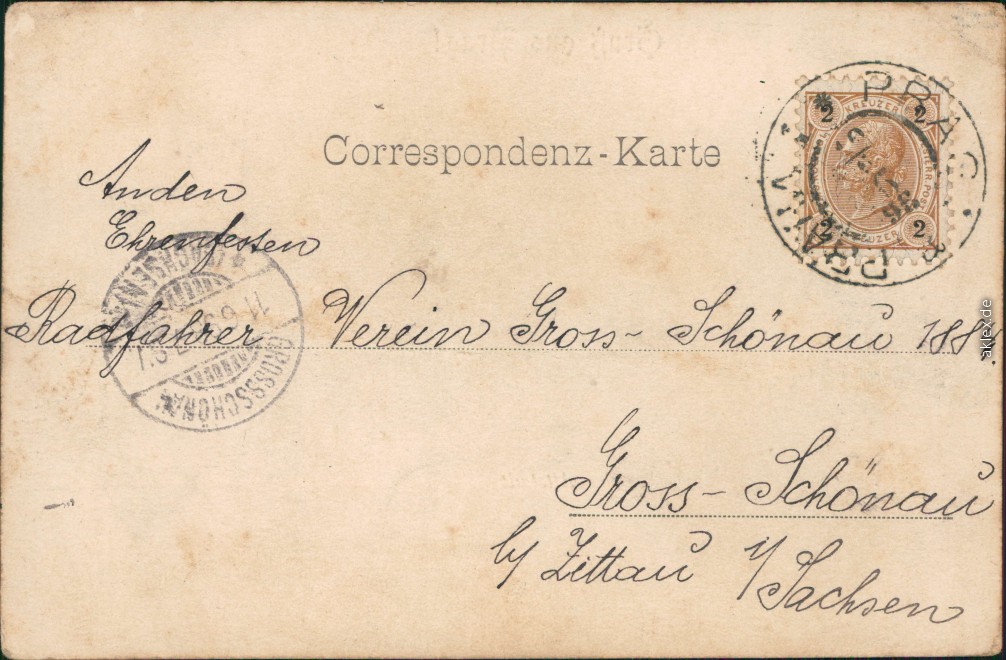 Correspondenz-Karte
2 KREUZER 2
2 KREUZER 2
PRAG
PRAHA
An den
Ehrenfesten
Radfahrer Verein Gross-Schönau 188
GROSSSCHÖNAU
(SACHSEN)
Gross-Schönau
b/ Zittau i/ Sachsen
aklex.de